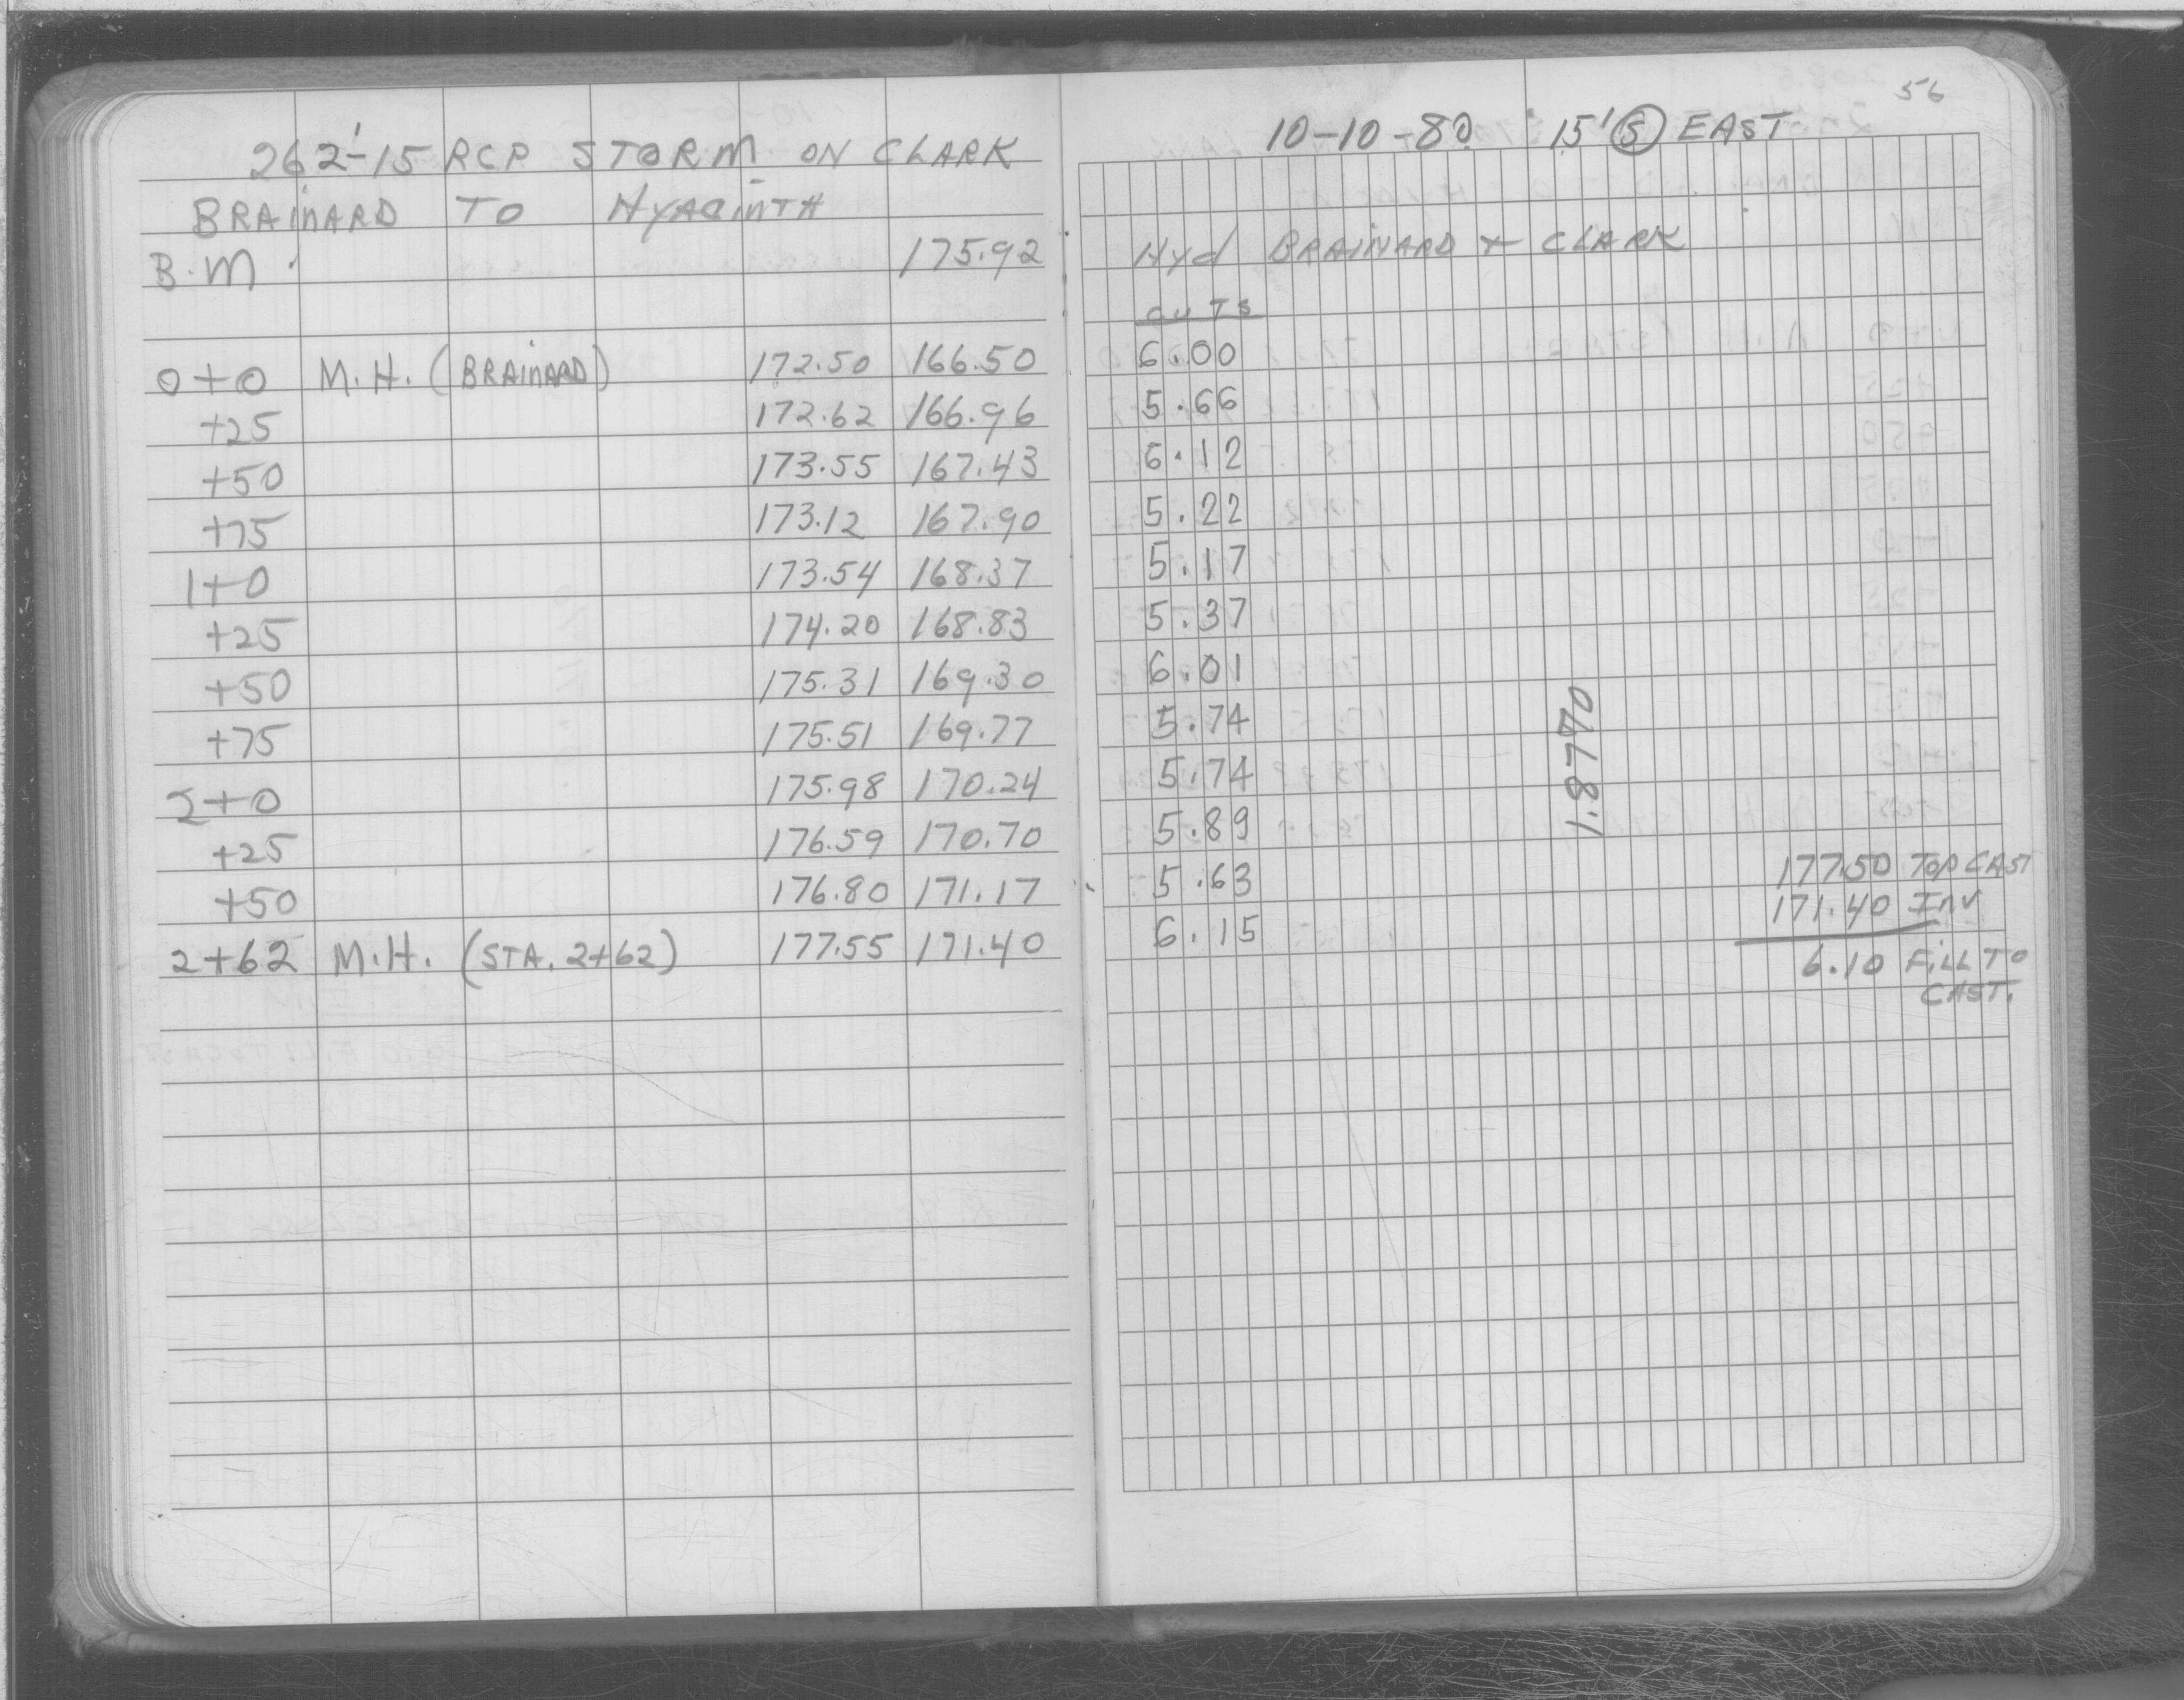 262'-15 RCP STORM ON CLARK
BRAINARD TO HYACINTH
B.M. 175.92
0+0 M.H. (BRAINARD) 172.50 166.50
+25 172.62 166.96
+50 173.55 167.43
+75 173.12 167.90
1+0 173.54 168.37
+25 174.20 168.83
+50 175.31 169.30
+75 175.51 169.77
2+0 175.98 170.24
+25 176.59 170.70
+50 176.80 171.17
2+62 M.H. (STA. 2+62) 177.55 171.40
56
10-10-80 15' S EAST
Hyd BRAINARD + CLARK
CUTS
6.00
5.66
6.12
5.22
5.17
5.37
6.01
5.74
5.74
5.89
5.63
6.15
1.87%
177.50 TOP CAST
171.40 INV
6.10 FILL TO
CAST.